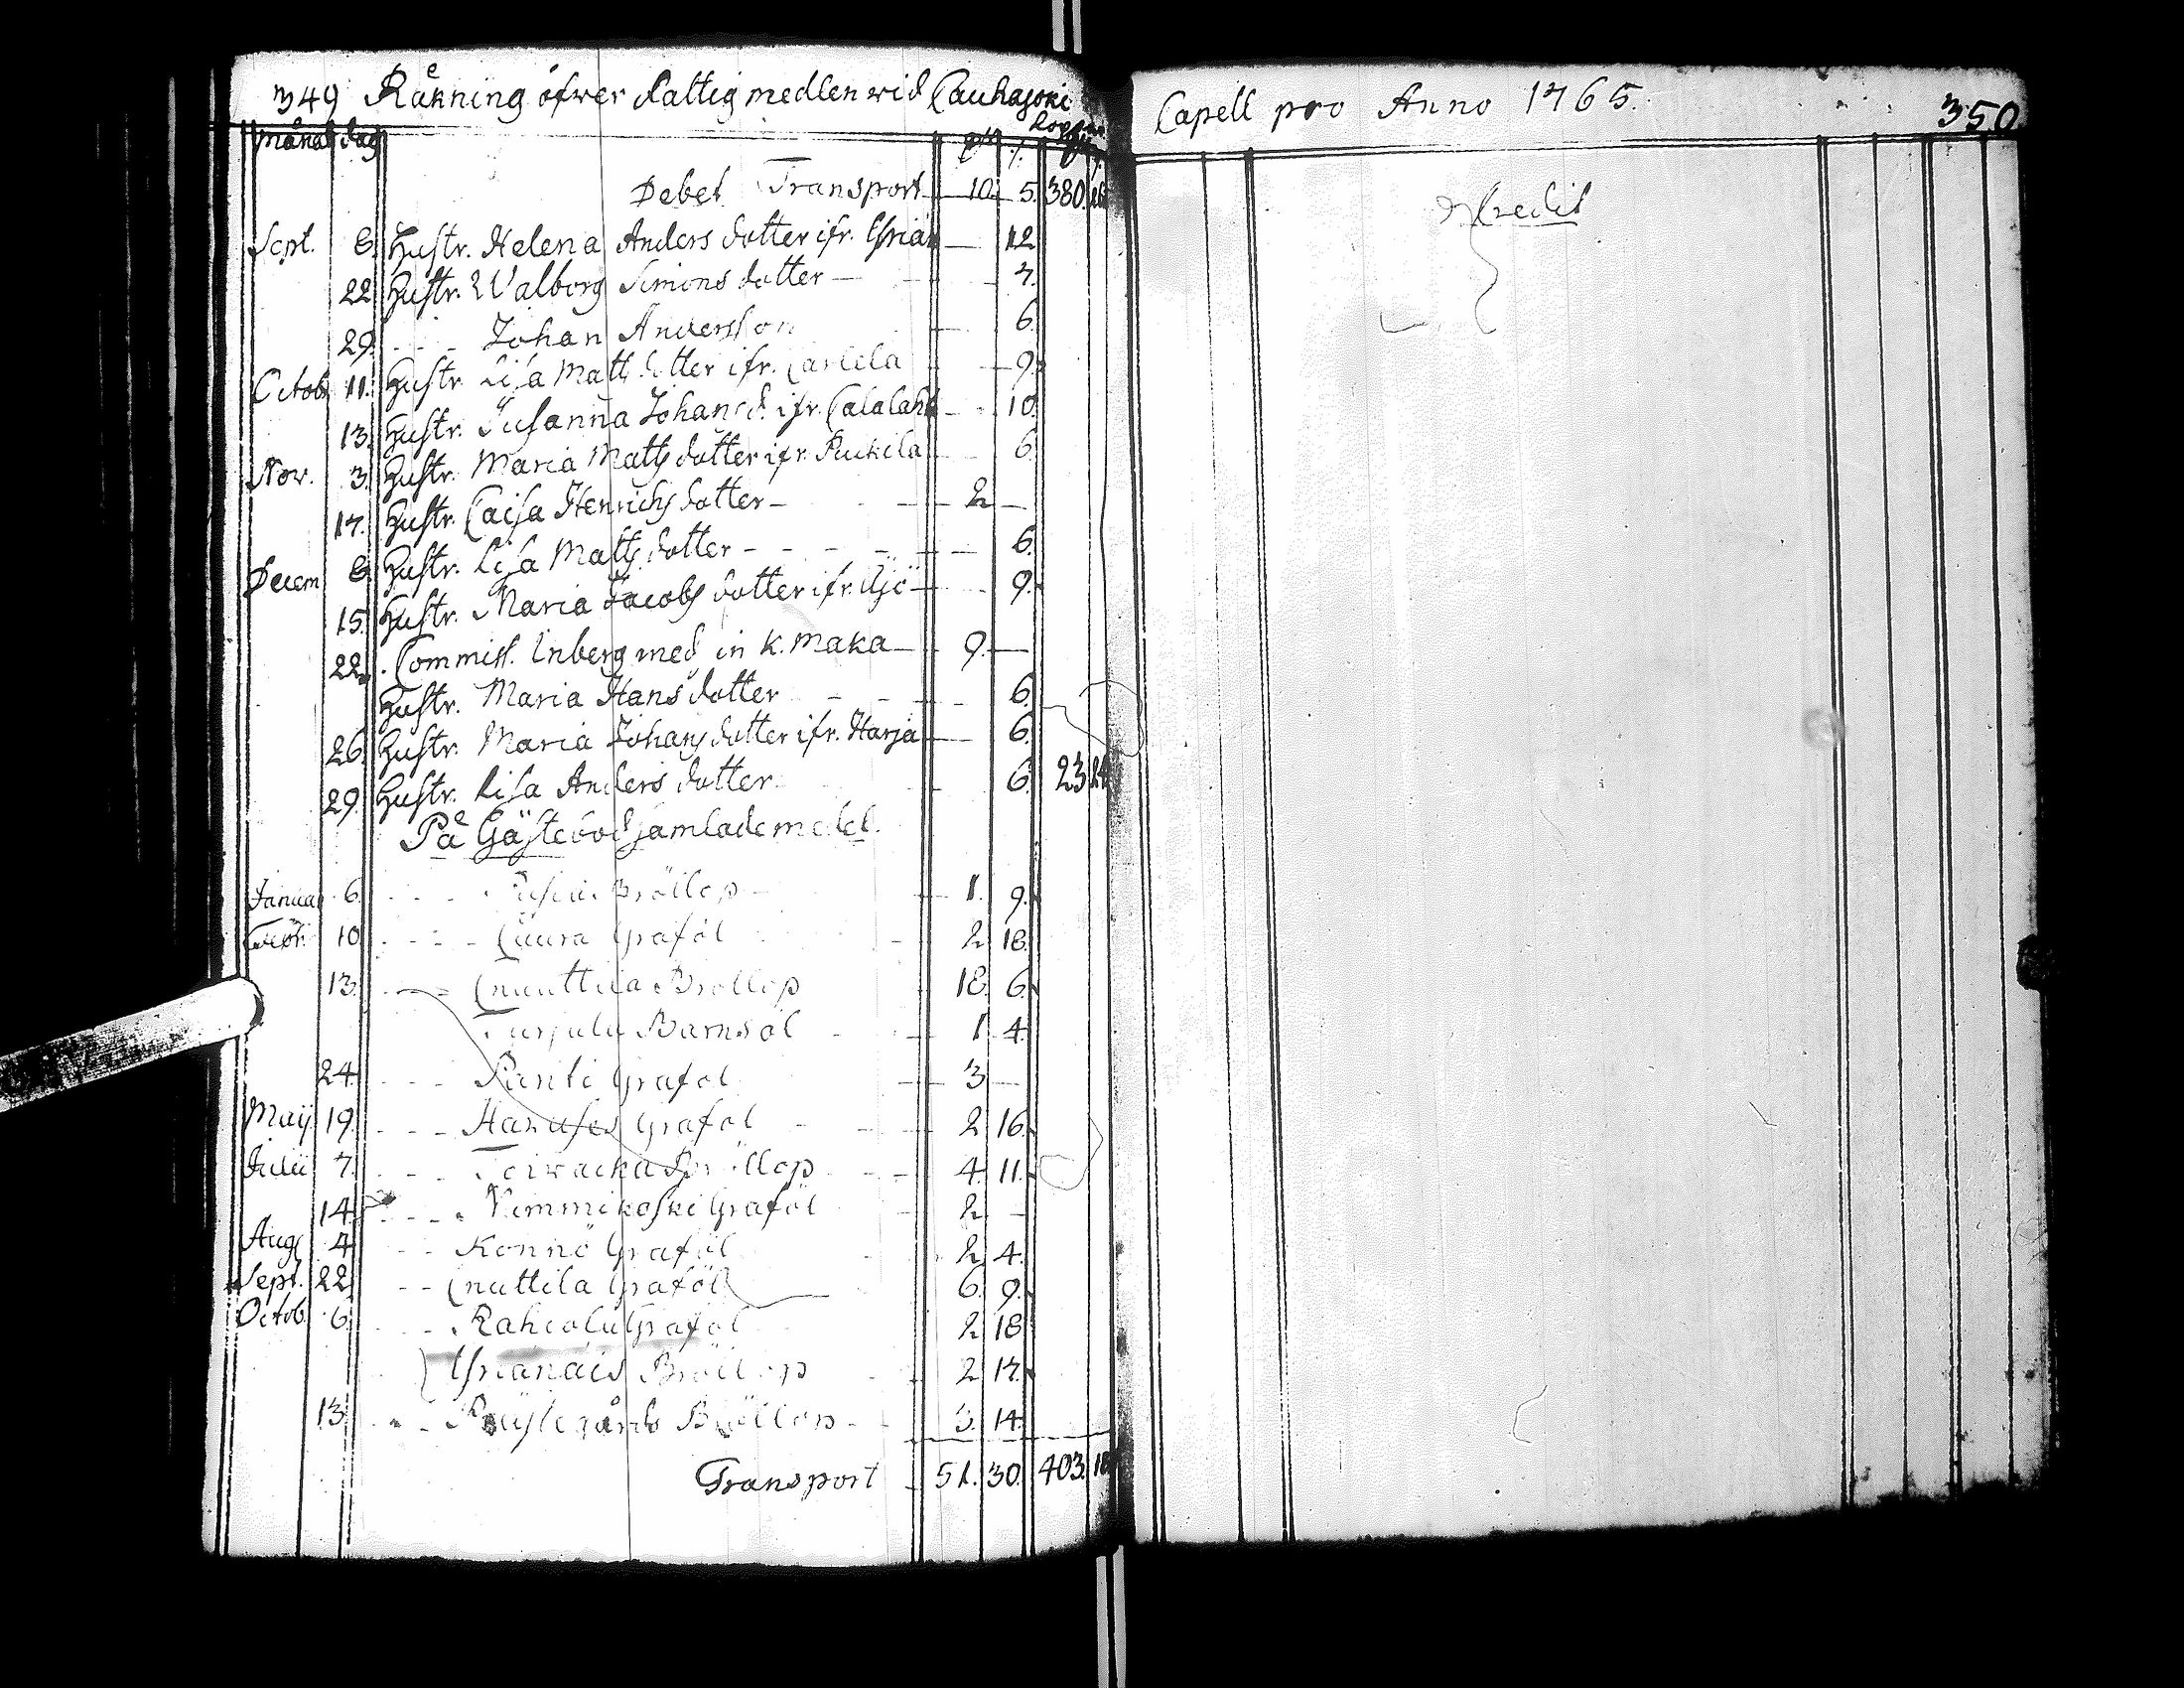 349 Räkning öfwer fattig medlen wid Cauhajoki
Månad dag
Debet Transport 10. 5. 380.
Sept. 8. Hustr. Helena Anders dotter ifr. Yriän 12
22 Hustr. Walborg Simons dotter 7.
29. Johan Andersson 6.
Octob. 11. Hustr. Lisa Matts dotter ifr. Carlela 9.
13. Hustr. Susanna Johans d. ifr. Calalaht 10.
Nov. 3. Hustr. Maria Matts dotter ifr. Puckila 6
17. Hustr. Caisa Henrichs dotter 2
Decem 8. Hustr. Lisa Matts dotter 6.
15. Hustr. Maria Jacobs dotter ifr. Äjö 9.
22. Commiss. Enberg med sin K. Maka 9.
Hustr. Maria Hans dotter 6.
26. Hustr. Maria Johans dotter ifr. Harja 6.
29. Hustr. Lisa Anders dotter 6. 23 24
På Gästebod samlade medel.
Janua 6. Bröllop 1. 9.
Febr. 10 Luura Graföl 2 18.
13. Cnuuttila Bröllop 18. 6.
Turjulu Barnsöl 1 4.
24. Panti Graföl 3
Maij 19. Hanuses Graföl 2 16.
Julii 7. Toiwacka Bröllop 4. 11.
14. Nummikoski Graföl 2
Aug. 4. Konno Graföl 2 4.
Sept. 22 Cnuttila Graföl 6. 9.
Octob. 6. Rahcola Graföl 2 18
Yrianäis Bröllop 2 17.
13. Bröllop 3. 14.
Transport 51. 30. 403. 18
Capell pro Anno 1765. 350
Credit